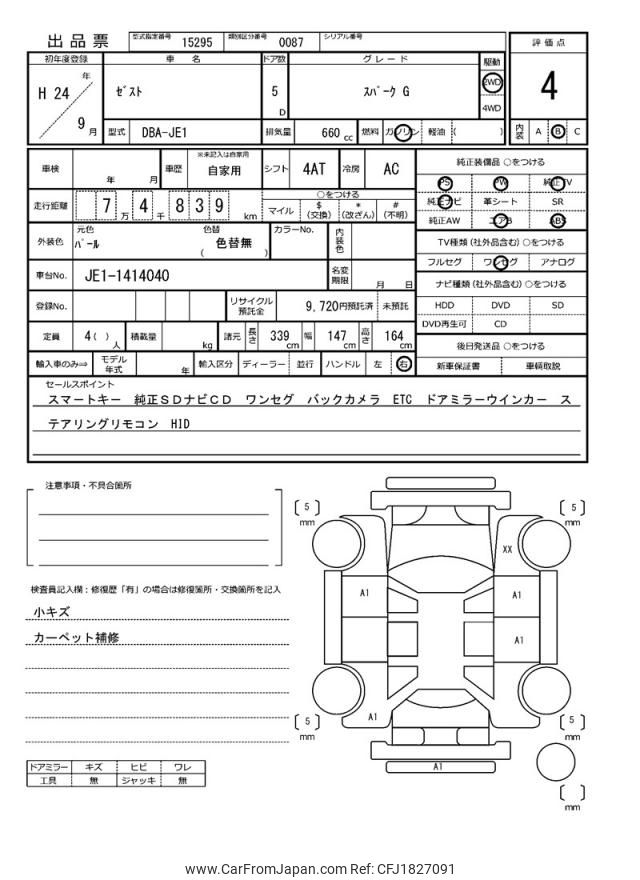 出品票 型式指定番号 15295 類別区分番号 0087 シリアル番号
初年度登録 車名 ドア数 グレード 駆動 評価点
H 24 年 9 月 ｾﾞｽﾄ 5 D ｽﾊﾟｰｸ G 2WD 4WD 4
型式 DBA-JE1 排気量 660 cc 燃料 ガソリン 軽油 ( ) 内装 A B C
車検 年 月 車歴 ※未記入は自家用 自家用 シフト 4AT 冷房 AC
走行距離 7 万 4 千 8 3 9 km ○をつける
マイル $(交換) *(改ざん) #(不明)
外装色 元色 ﾊﾟｰﾙ 色替 ( 色替無 ) カラーNo. 内装色
車台No. JE1-1414040 名変期限 月 日
登録No. リサイクル預託金 9,720円預託済 未預託
定員 4 ( ) 人 積載量 kg 諸元 長さ 339 cm 幅 147 cm 高さ 164 cm
輸入車のみ⇒ モデル年式 年 輸入区分 ディーラー 並行 ハンドル 左 右
純正装備品 ○をつける
PS PW 純正TV
純正ナビ 革シート SR
純正AW エアB ABS
TV種類 (社外品含む) ○をつける
フルセグ ワンセグ アナログ
ナビ種類 (社外品含む) ○をつける
HDD DVD SD
DVD再生可 CD
後日発送品 ○をつける
新車保証書 車輌取説
セールスポイント
スマートキー 純正ＳＤナビＣＤ ワンセグ バックカメラ ETC ドアミラーウインカー ス
テアリングリモコン HID
注意事項・不具合箇所
検査員記入欄：修復歴「有」の場合は修復箇所・交換箇所を記入
小キズ
カーペット補修
ドアミラー キズ ヒビ ワレ
工具 無 ジャッキ 無
[ 5 ] mm [ 5 ] mm
XX
A1 A1
A1
A1
[ 5 ] mm [ 5 ] mm
A1
[ ] mm
www.CarFromJapan.com Ref: CFJ1827091